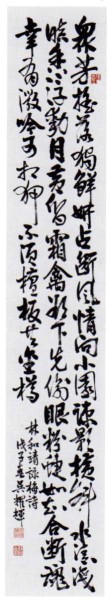 眾芳搖落獨鮮妍占斷風情向小園疎影橫斜水清淺
暗香浮動月黃昏霜禽欲下先偷眼粉蝶如知合斷魂
幸有微吟可相狎不須檀板共金樽
林和靖詠梅詩
戊子春吳耀輝